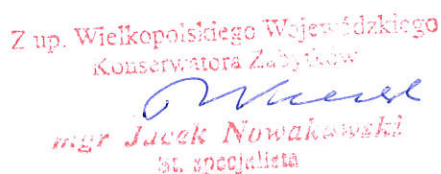 Z up. Wielkopolskiego Wojewódzkiego
Konserwatora Zabytków
mgr Jacek Nowakowski
st. specjalista